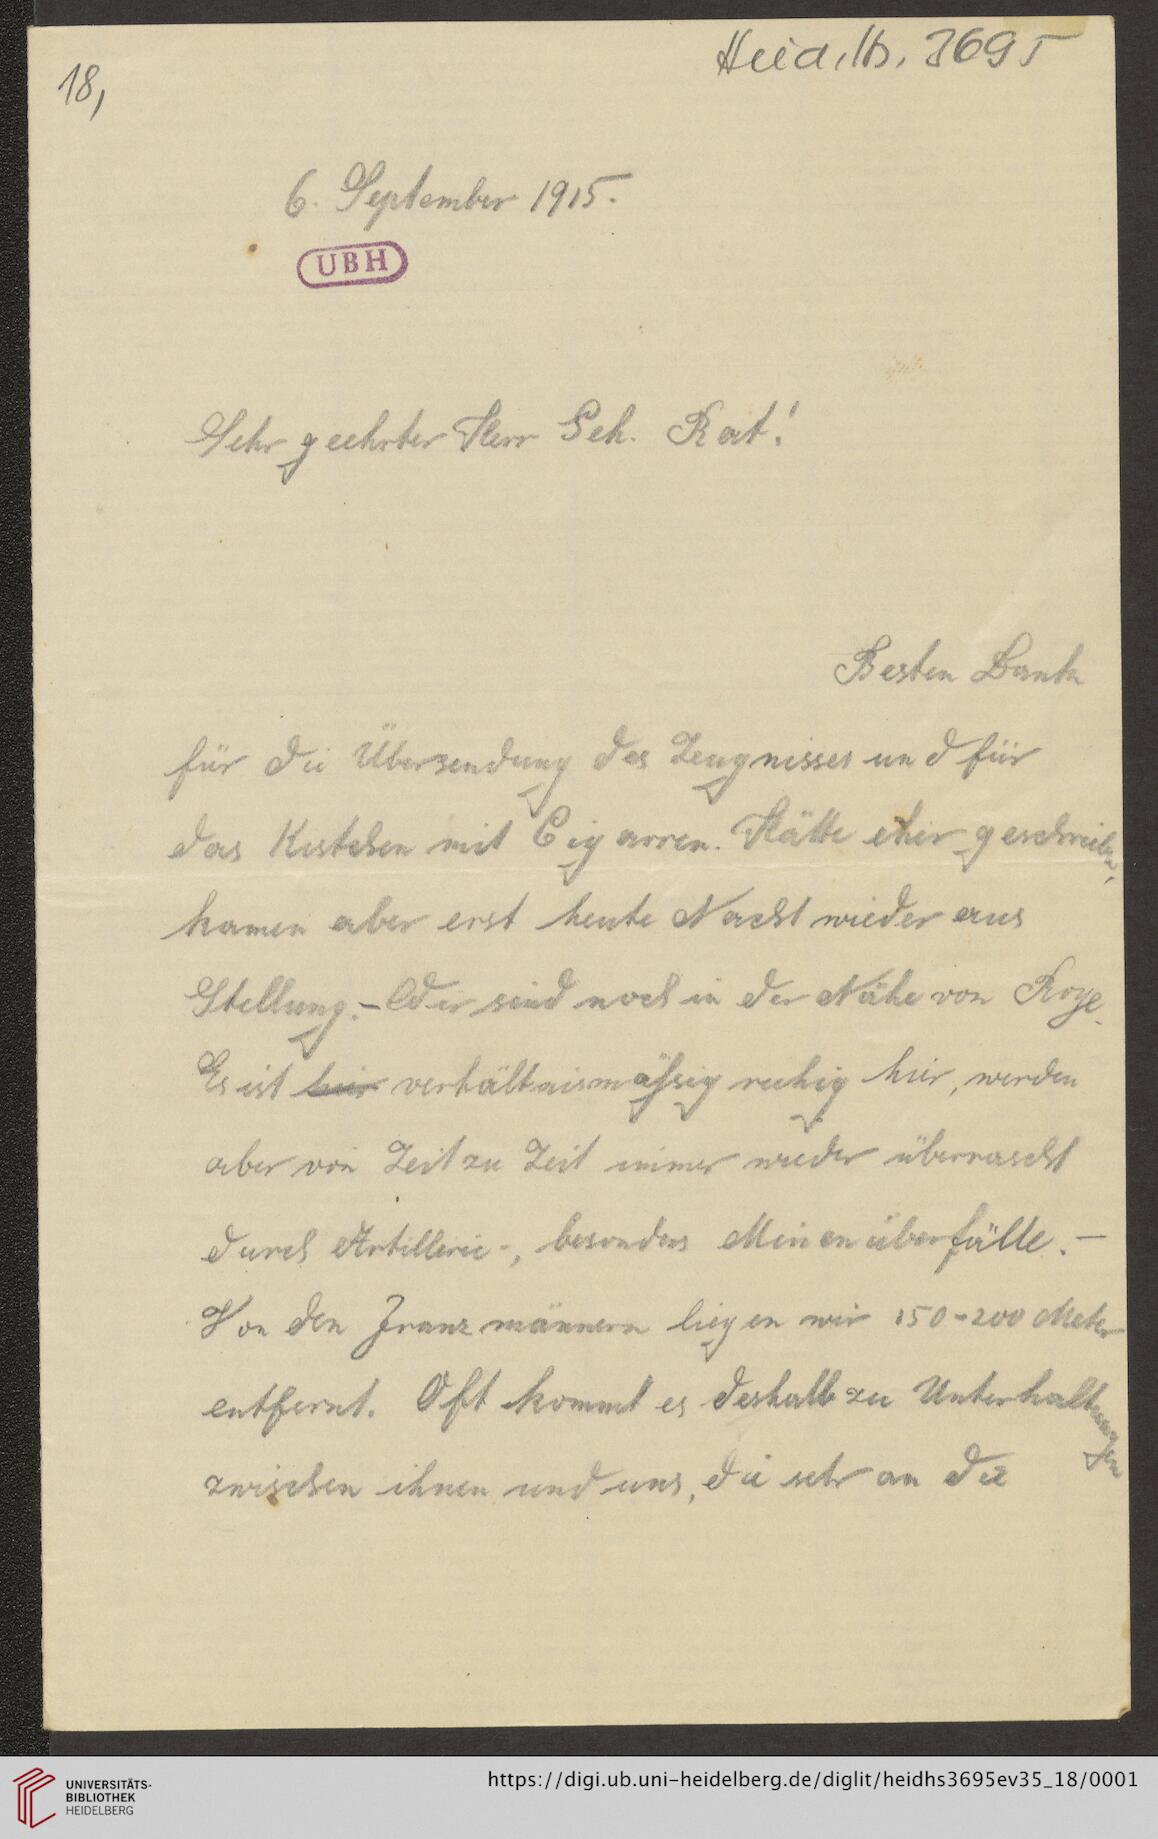 Heid. Hs. 3695
18,
6. September 1915.
UBH
Sehr geehrter Herr Geh. Rat!
Besten Dank
für die Übersendung des Zeugnisses und für
das Kistchen mit Cigarren. Hätte eher geschrieben,
kamen aber erst heute Nacht wieder aus
Stellung. – Wir sind noch in der Nähe von Roye.
Es ist hier verhältnismässig ruhig hier, werden
aber von Zeit zu Zeit immer wieder überrascht
durch Artillerie-, besonders Minenüberfälle. –
Von den Franzmännern liegen wir 150-200 Meter
entfernt. Oft kommt es deshalb zu Unterhaltungen
zwischen ihnen und uns, die sehr an die
UNIVERSITÄTS-
BIBLIOTHEK
HEIDELBERG
https://digi.ub.uni-heidelberg.de/diglit/heidhs3695ev35_18/0001